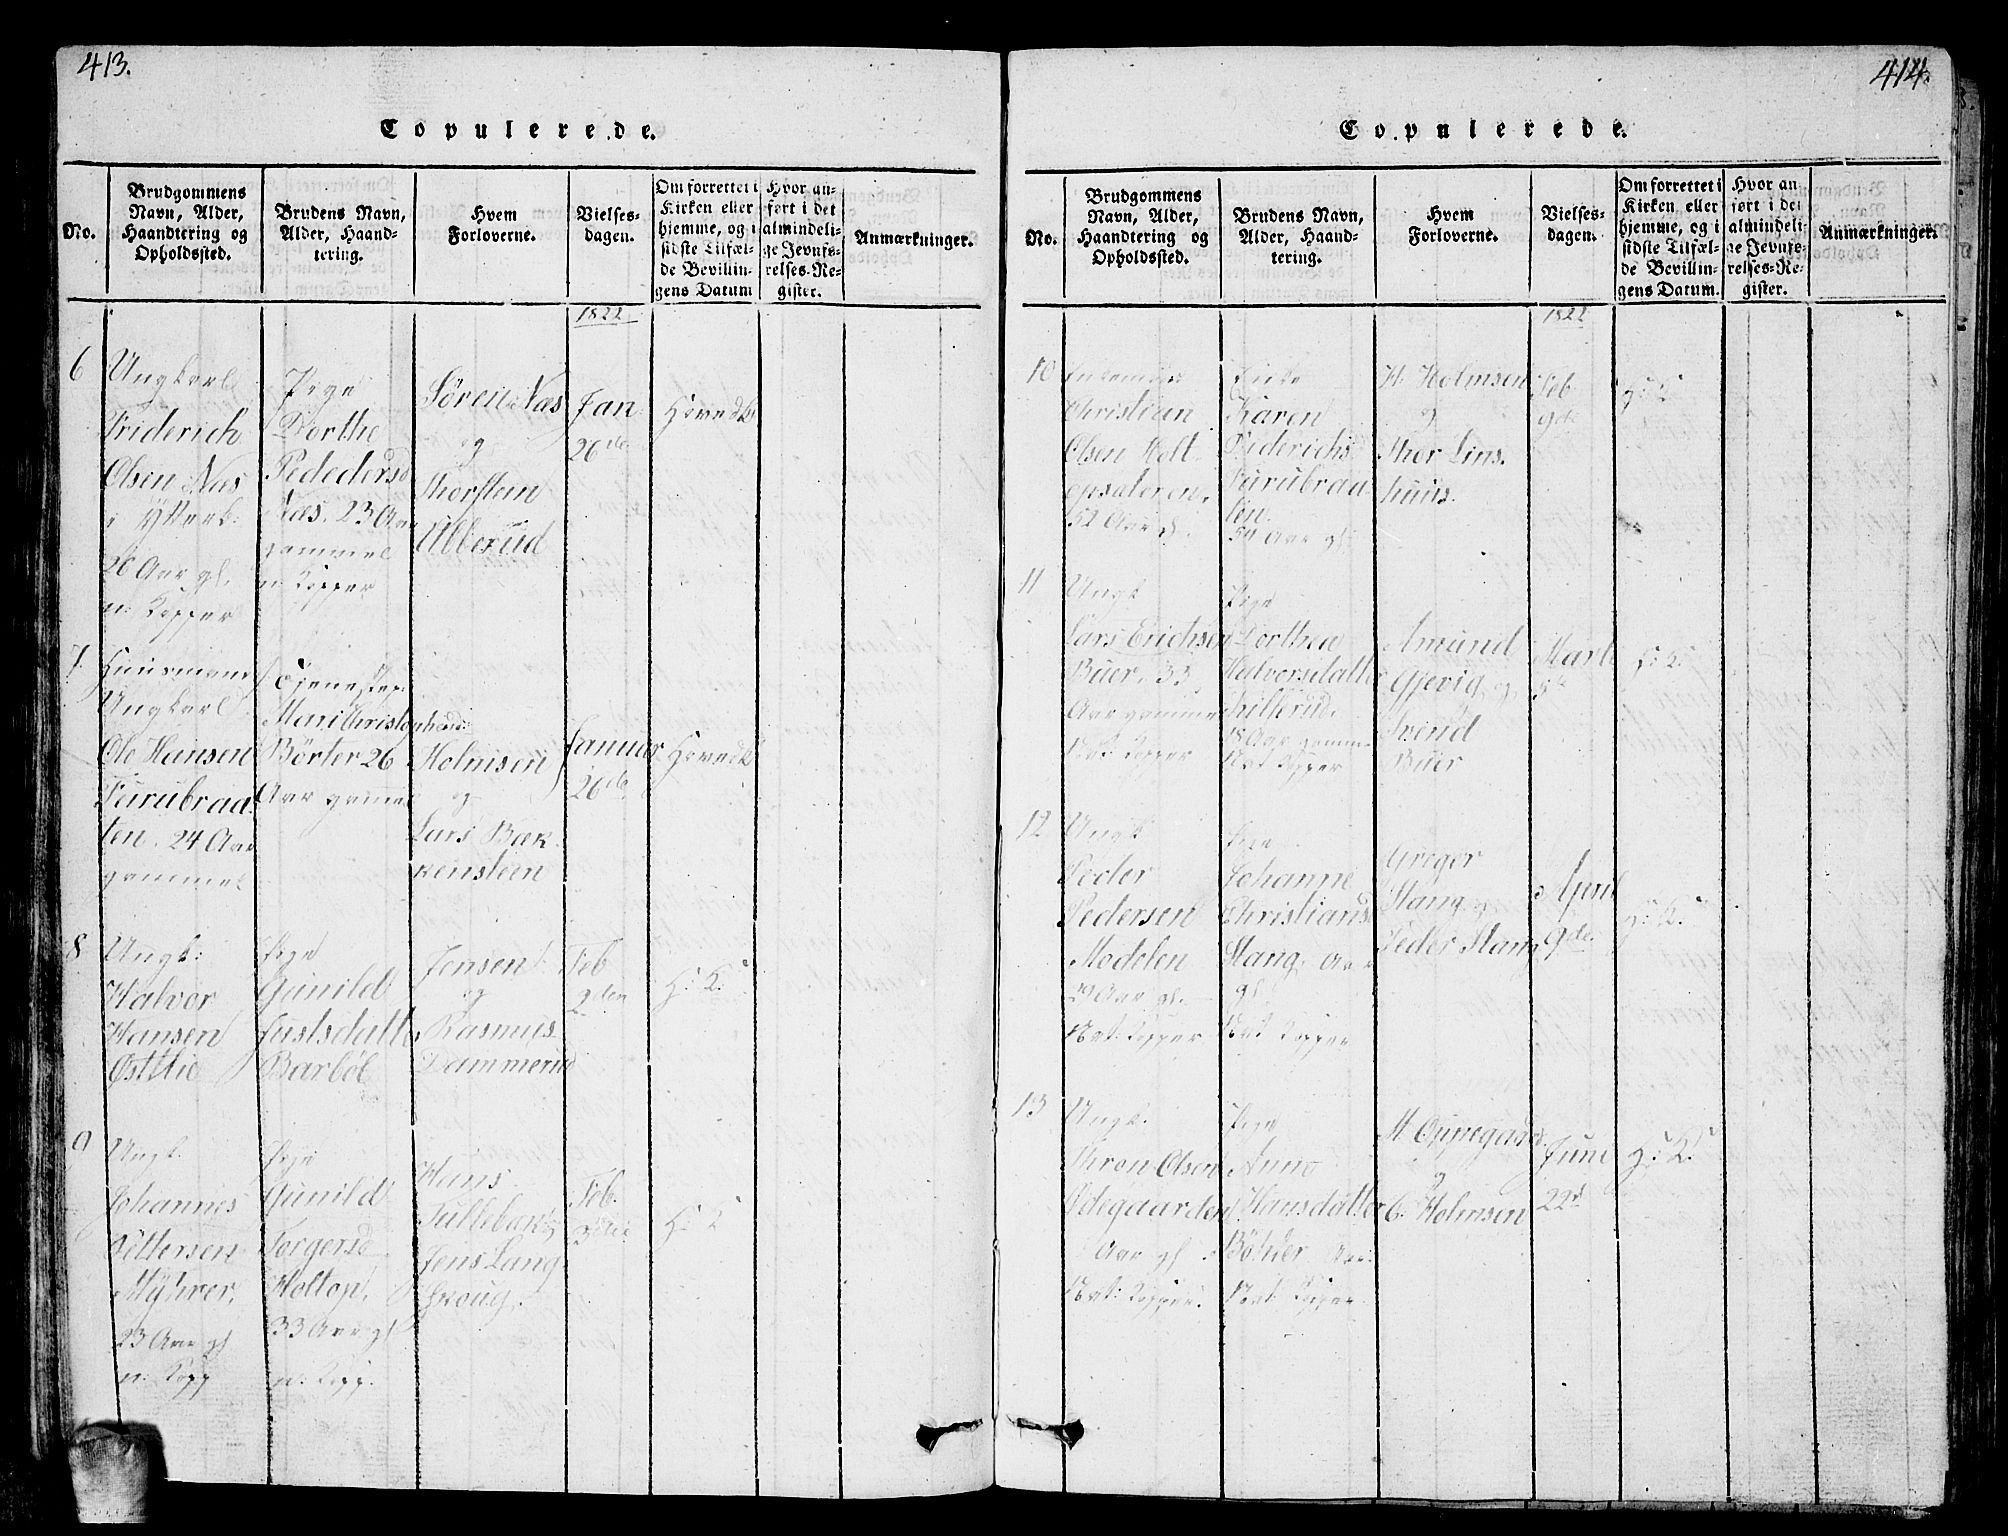 413.
Copulerede.
No.
Brudgommens Navn, Alder, Haandtering og Opholdssted.
Brudens Navn, Alder, Haandtering.
Hvem Forloverne.
Vielsesdagen.
Om forrettet i Kirken eller hjemme, og i sidste Tilfælde Bevillingens Datum
Hvor anført i det almindelige Jevnførelses-Register.
Anmærkninger.
1822
6
Ungkarl
Friderich
Olsen Næs
26 Aar gl.
n: Kopper
Pige
Dorthe
Næs. 23 Aar
gammel
n: Kopper
Søren Næs
og
Thorstein
Ulberud
Jan
26de
Hovedk
7
Huusmand
Ungkarl
Ole Hansen
Furubraa
ten. 24 Aar
gammel
Börter 26
Aar gammel
Holmsen
og
Lars Bæk
kensteen
Januar
26de
Hovedk
8
Ungk:
Halvor
Hansen
Östlie
Pige
Gunild
Justsdatter
Barböl
Jensen
og
Rasmus
Dammerud
Feb
9den
H: K:
9
Ungk.
Johannes
Pettersen
Myhrer.
23 Aar gl
n: Kopp
Pige
Gunild
Torgersd
Holtop.
33 Aar gl
n. Kopp.
Hans
Tillebak
Jens Lang
Skoug.
Feb.
H: K
414.
Copulerede.
No.
Brudgommens Navn, Alder, Haandtering og Opholdssted.
Brudens Navn, Alder, Haandtering.
Hvem Forloverne.
Vielsesdagen.
Om forrettet i Kirken eller hjemme, og i sidste Tilfælde Bevillingens Datum.
Hvor anført i det almindelige Jevnførelses-Register.
Anmærkninger.
1822
10
Enkemand
Christian
Olsen Holt
opsateren.
52 Aar gl.
Enke
Karen
Friderichs
Furubraa
ten.
54 Aar gl:
H. Holmsen
og
Thor Lins
huus.
Feb
9de
H: K
11
Ungk
Lars Erichsen
Buer. 33
Aar gammel
Nat. Kopper
Pige
Dorthea
Halvorsdatter
18 Aar gamm
Nat Kopper
Amund
Gjevig, og
Svend
Buer
Marts
H: K:
12
Ungk
Peder
Pedersen
Modelen
29 Aar gl.
Nat: Kopper
Pige
Johanne
Christiansd
Stang, Aar
gl
Nat Kopper
Gregor
Stang og
Peder Stang
April
9de.
H: K:
13
Ungk.
Thron Olsen
Ödegaarden
Aar gl
Nat: Kopper.
Pige
Anne
Hansdatter
Aar
Nat: Kopper
M Oppegaard
og
C. Holmsen
Juni
22d
H: K: